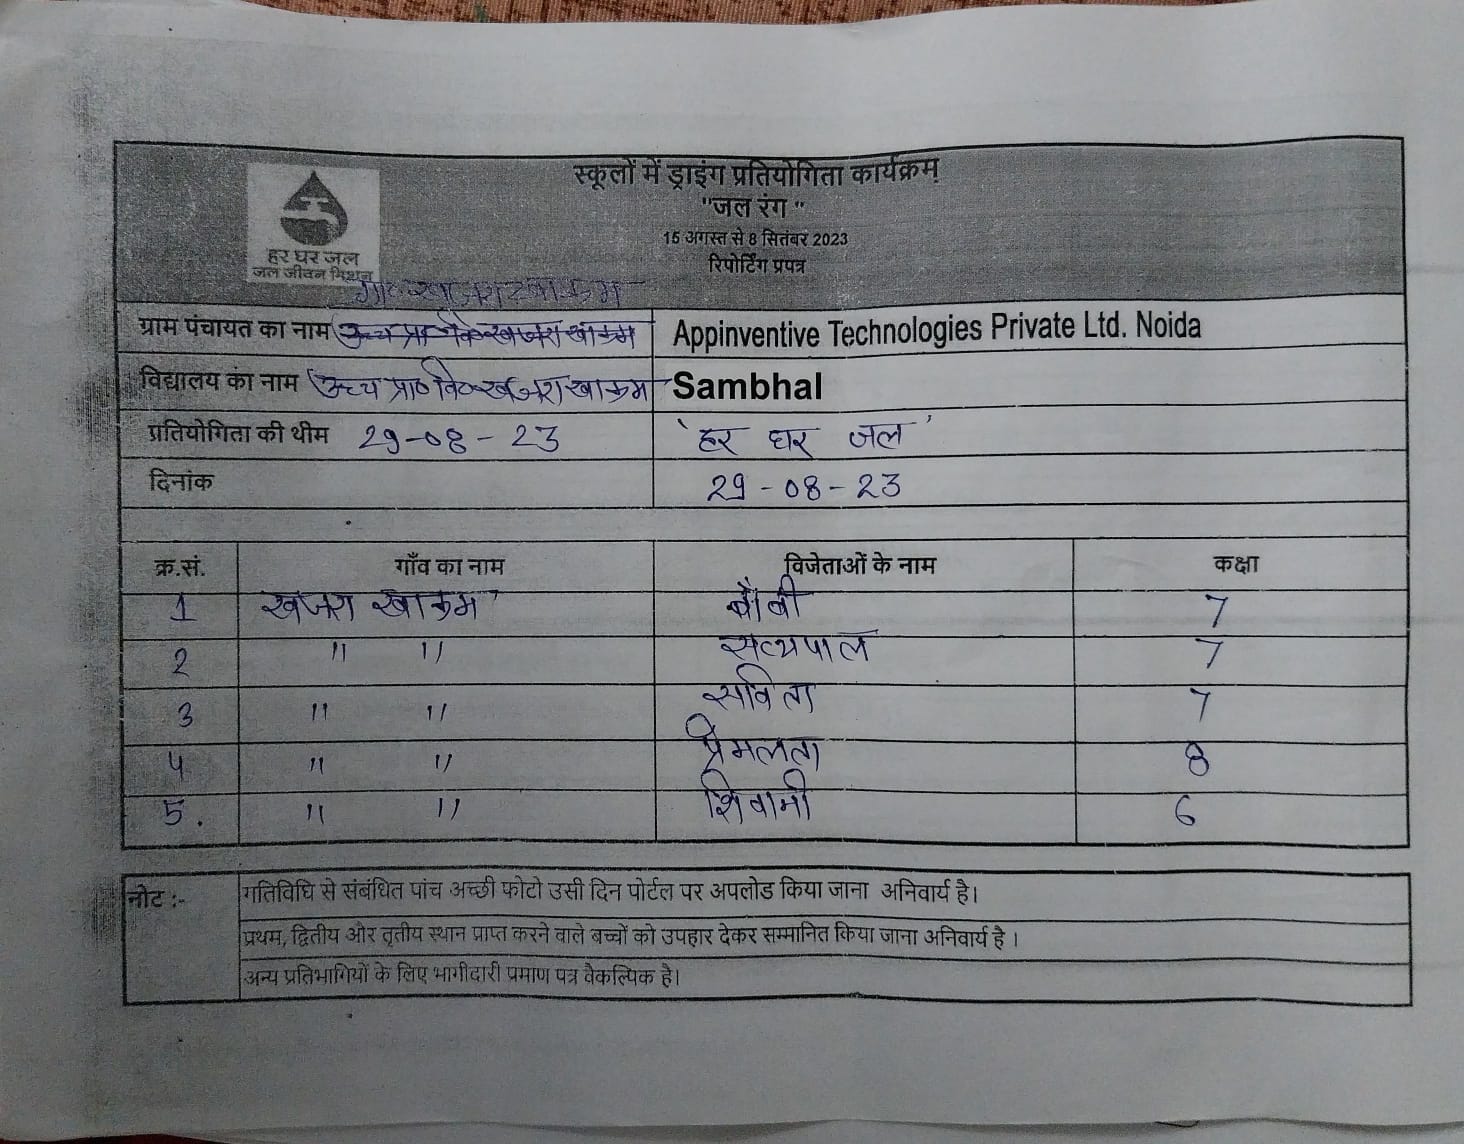 स्कूलों में ड्राइंग प्रतियोगिता कार्यक्रम
"जल रंग "
15 अगस्त से 8 सितंबर 2023
रिपोर्टिंग प्रपत्र
हर घर जल
जल जीवन मिशन
ग्राम पंचायत का नाम Appinventive Technologies Private Ltd. Noida
विद्यालय का नाम उच्च प्रा० वि० खजरा खाकम Sambhal
प्रतियोगिता की थीम 29-08-23 'हर घर जल'
दिनांक 29-08-23
क्र.सं. गाँव का नाम विजेताओं के नाम कक्षा
1 खजरा खाकम बौबी 7
2 " " सत्यपाल 7
3 " " सविता 7
4 " " प्रेमलता 8
5. " " शिवानी 6
नोट :- गतिविधि से संबंधित पांच अच्छी फोटो उसी दिन पोर्टल पर अपलोड किया जाना अनिवार्य है।
प्रथम, द्वितीय और तृतीय स्थान प्राप्त करने वाले बच्चों को उपहार देकर सम्मानित किया जाना अनिवार्य है ।
अन्य प्रतिभागियों के लिए भागीदारी प्रमाण पत्र वैकल्पिक है।